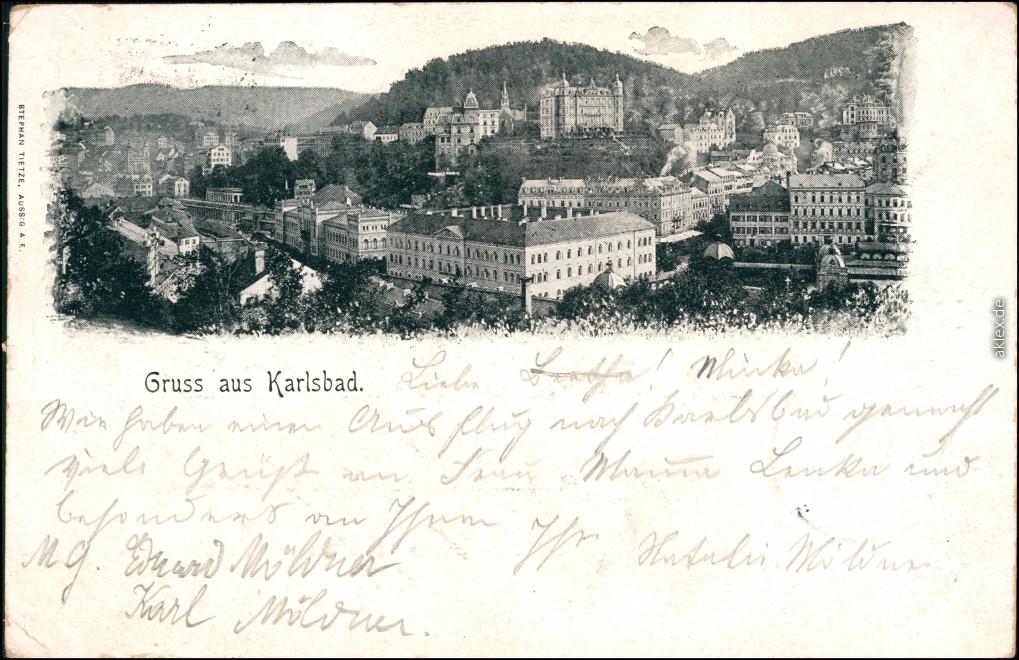 STEPHAN TIETZE, AUSSIG A. E.
Gruss aus Karlsbad.
Liebe Bertha! Minka!
Wir haben einen Ausflug nach Karlsbad gemacht
viele Grüße an Mama Lenka und
besonders an Ihnen
Ihre Natalie Möldner
M. G. Eduard Möldner
Karl Möldner.
aklex.de